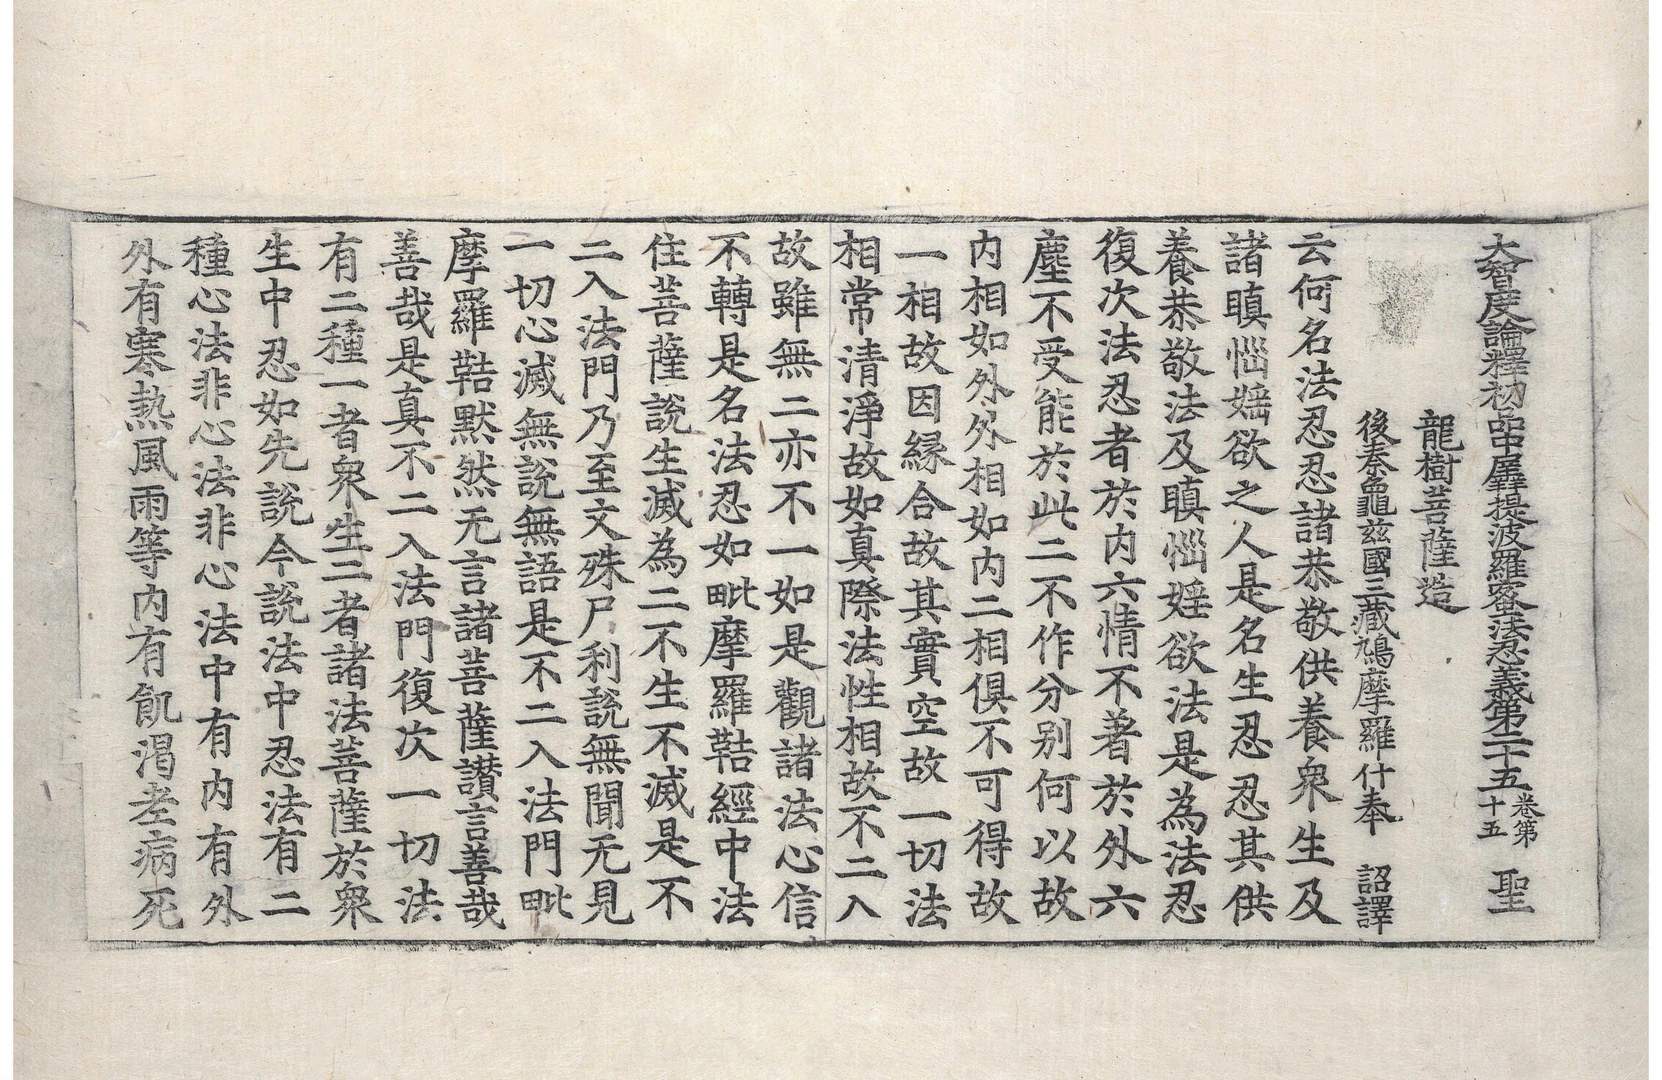 大智度論釋初品中羼提波羅蜜法忍義第二十五卷第十五 聖
龍樹菩薩造
後秦龜茲國三藏鳩摩羅什奉 詔譯
云何名法忍忍諸恭敬供養衆生及
諸瞋惱婬欲之人是名生忍忍其供
養恭敬法及瞋惱婬欲法是為法忍
復次法忍者於内六情不著於外六
塵不受能於此二不作分别何以故
内相如外外相如内二相俱不可得故
一相故因縁合故其實空故一切法
相常清淨故如真際法性相故不二入
故雖無二亦不一如是觀諸法心信
不轉是名法忍如毗摩羅鞊經中法
住菩薩說生滅為二不生不滅是不
二入法門乃至文殊尸利説無聞无見
一切心滅無說無語是不二入法門毗
摩羅鞊默然无言諸菩薩讚言善哉
善哉是真不二入法門復次一切法
有二種一者衆生二者諸法菩薩於衆
生中忍如先説今説法中忍法有二
種心法非心法非心法中有内有外
外有寒熱風雨等内有飢渴老病死